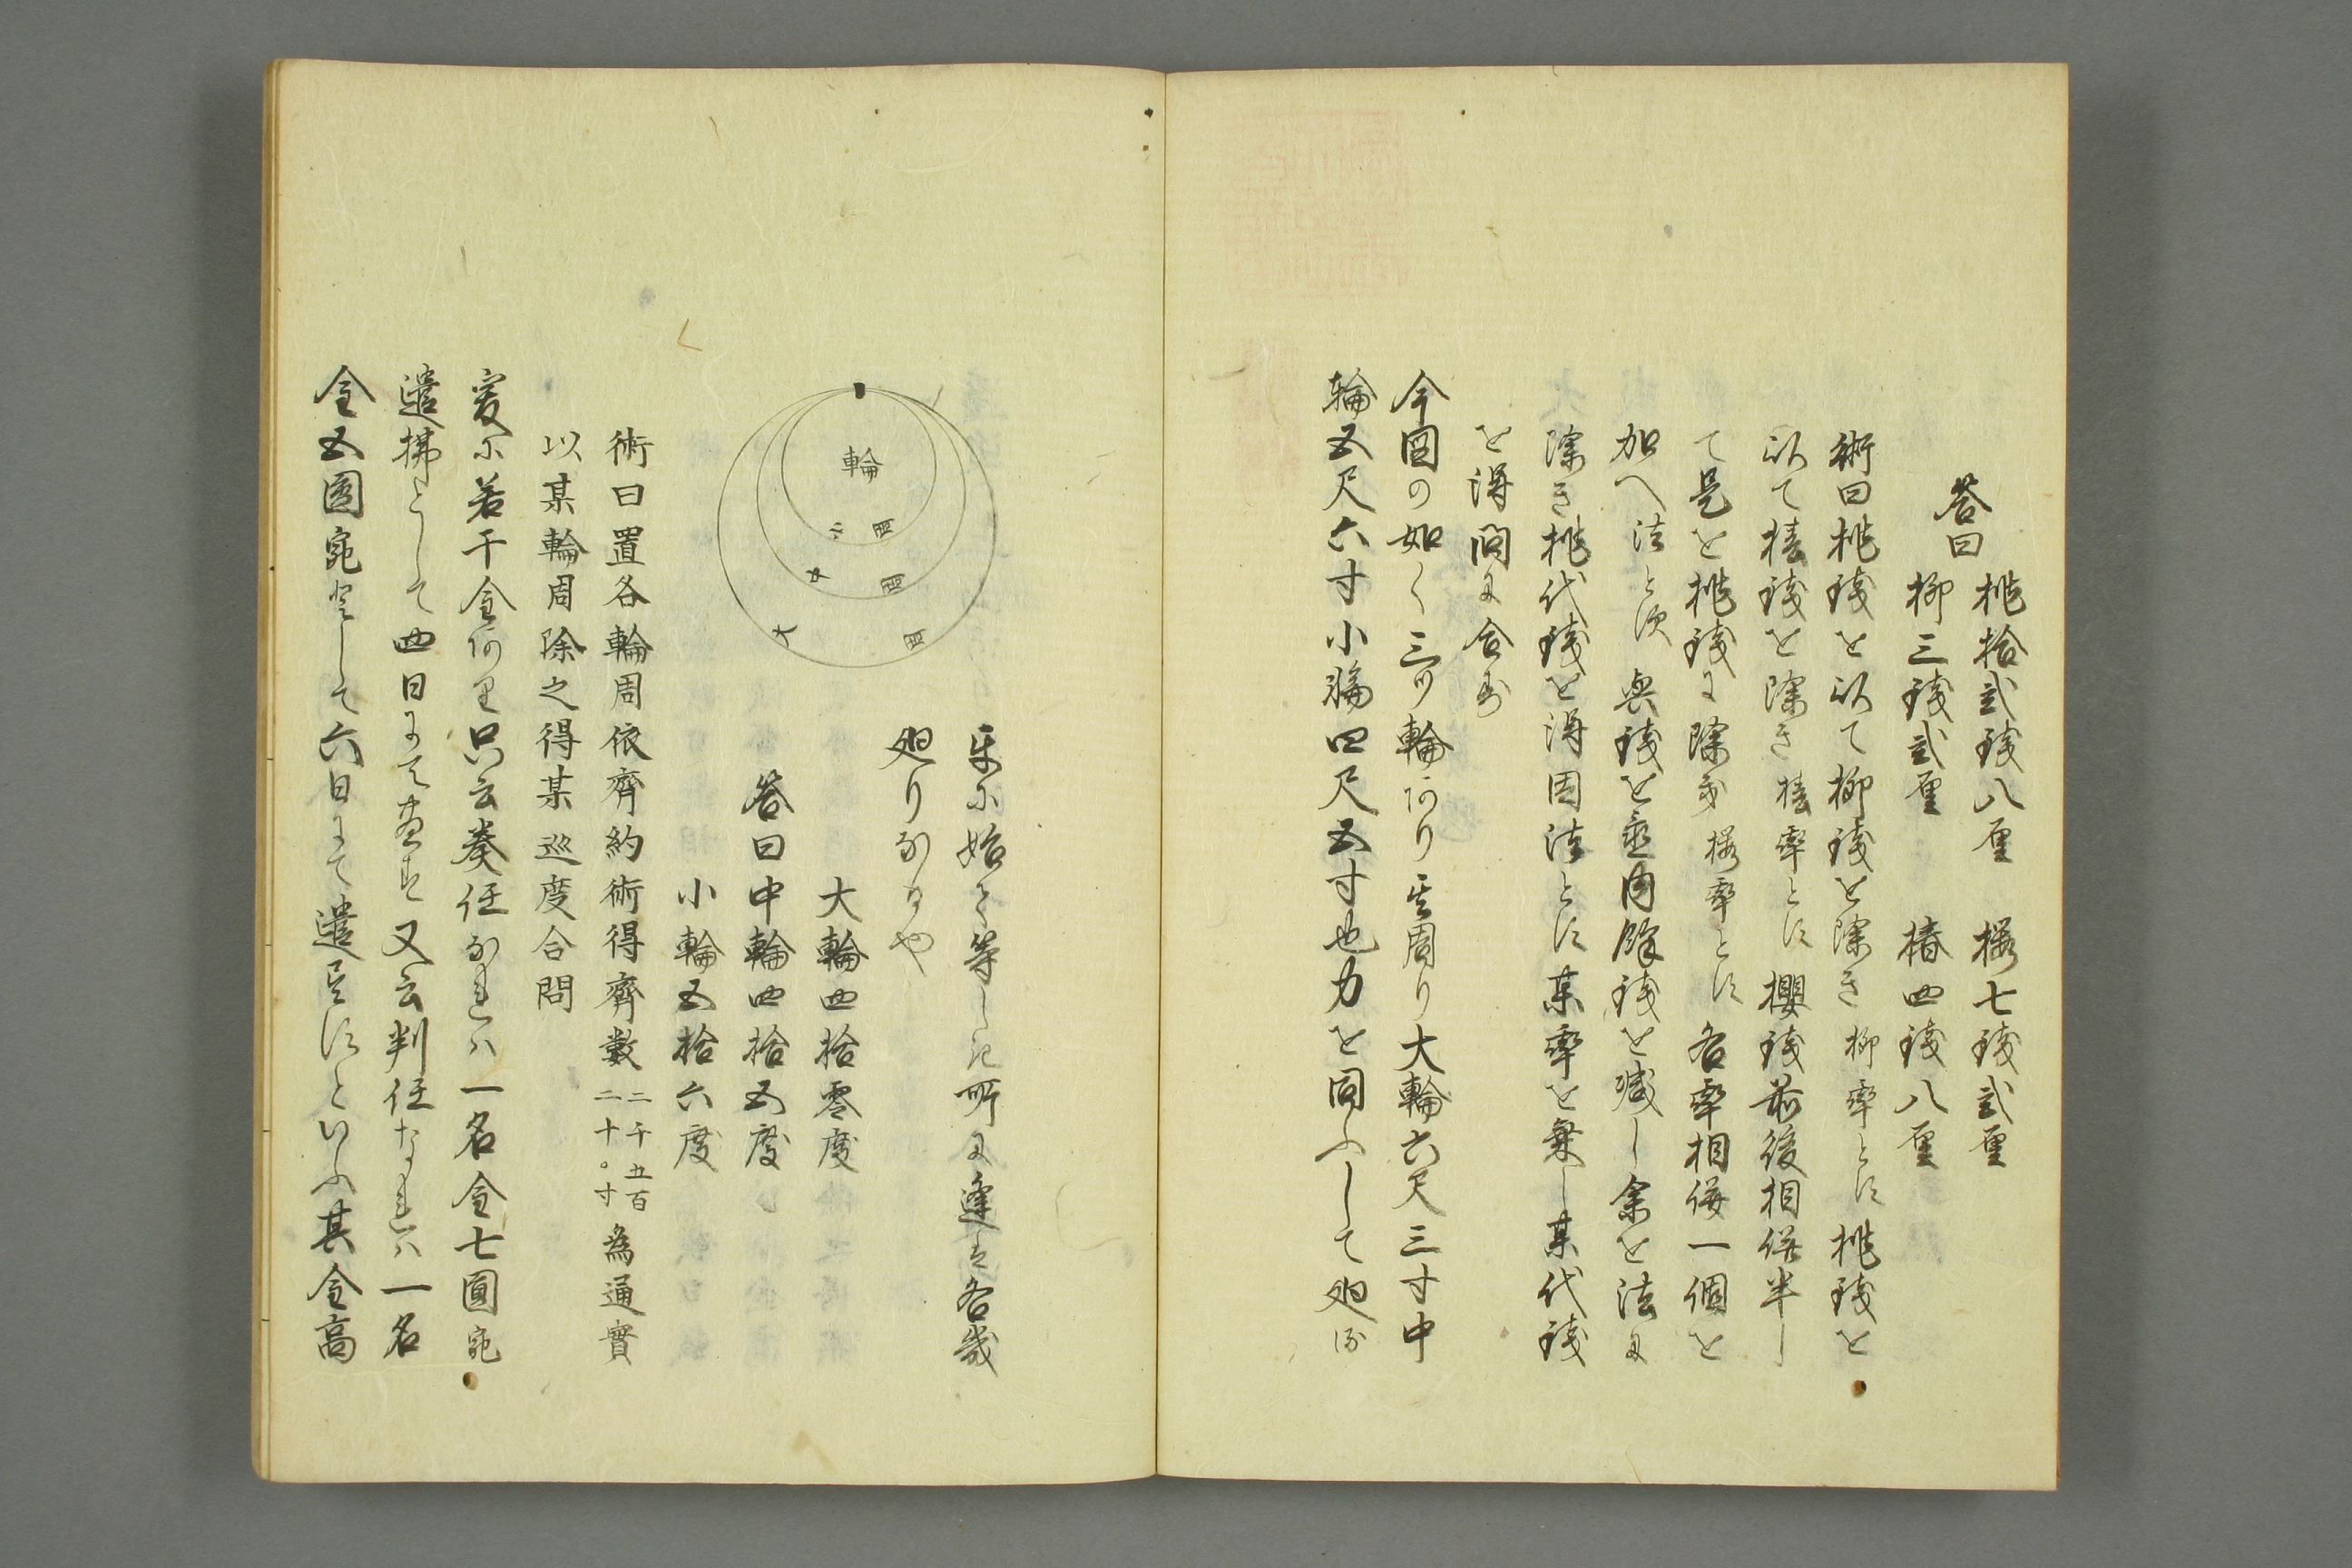 答曰
桃拾弐銭八厘 櫻七銭弐厘
柳三銭弐厘 椿四銭八厘
術曰桃銭を以て柳銭を除き柳率とす桃銭を
以て椿銭を除き椿率とす櫻銭前後相併半し
て是を桃銭に除き櫻率とす各率相併一個を
加へ法と須 與銭を 内餘銭を減し余を法に
除き桃代銭を得因法とす某率を乗し某代銭
を得問に合
今図の如く三ツ輪あり其周り大輪六尺三寸中
輪五尺六寸小輪四尺五寸也力を同ふして廻る
に始て等しき所に逢ば各幾
廻りなるや
輪
小 中 大
大輪四拾零度
答曰中輪四拾五度
小輪五拾六度
術曰置各輪周依齊約術得齊数二千五百二十〇寸為通實
以某輪周除之得某巡度合問
爰に若干金あり只云奏任なれハ一名金七圓宛
遣拂として四日にて尽す又云判任なれハ一名
金五圓宛として六日にて遣尽すといふ其金高